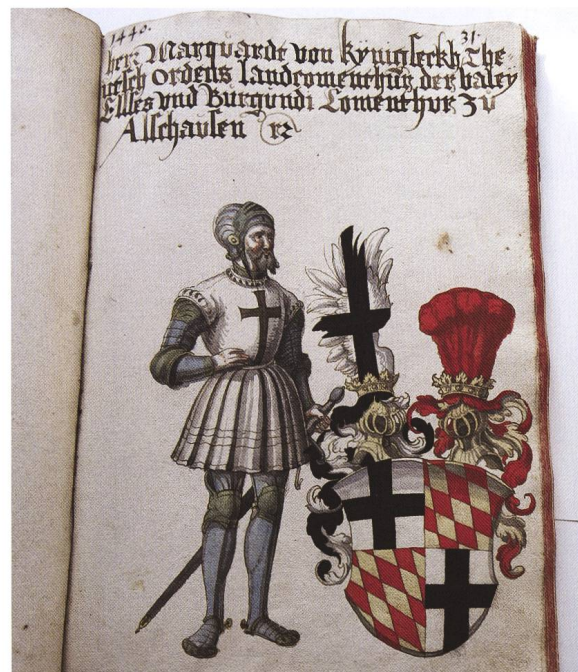 1440.
31.
herr Marquardt von kynigseckh The
utesch ordens landcomenthur der valey
Elses vnd Burgundi Comenthur zu
Alschausen